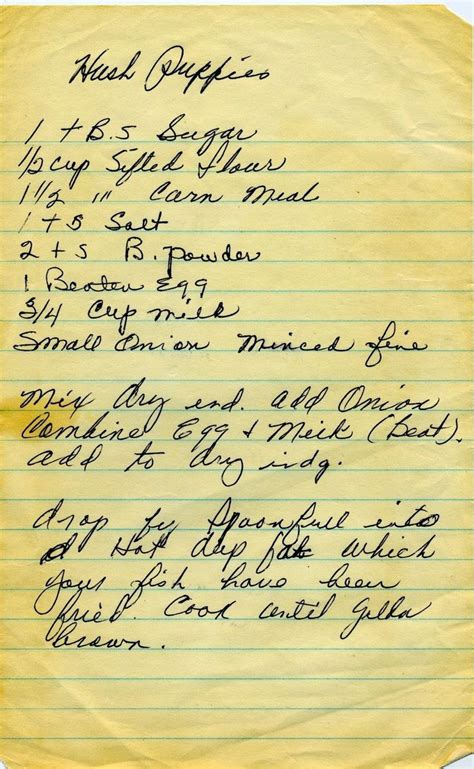 Hush Puppies
1 tB.S Sugar
1/2 cup Sifted flour
1 1/2 " Corn Meal
1 t S Salt
2 t S B. powder
1 Beaten Egg
3/4 Cup milk
Small Onion Minced fine
Mix dry ind. add Onion
Combine Egg & Milk (Beat).
add to dry indg.
drop by Spoonfull into
Hot deep fat which
your fish have been
fried. Cook until Golden
brown.